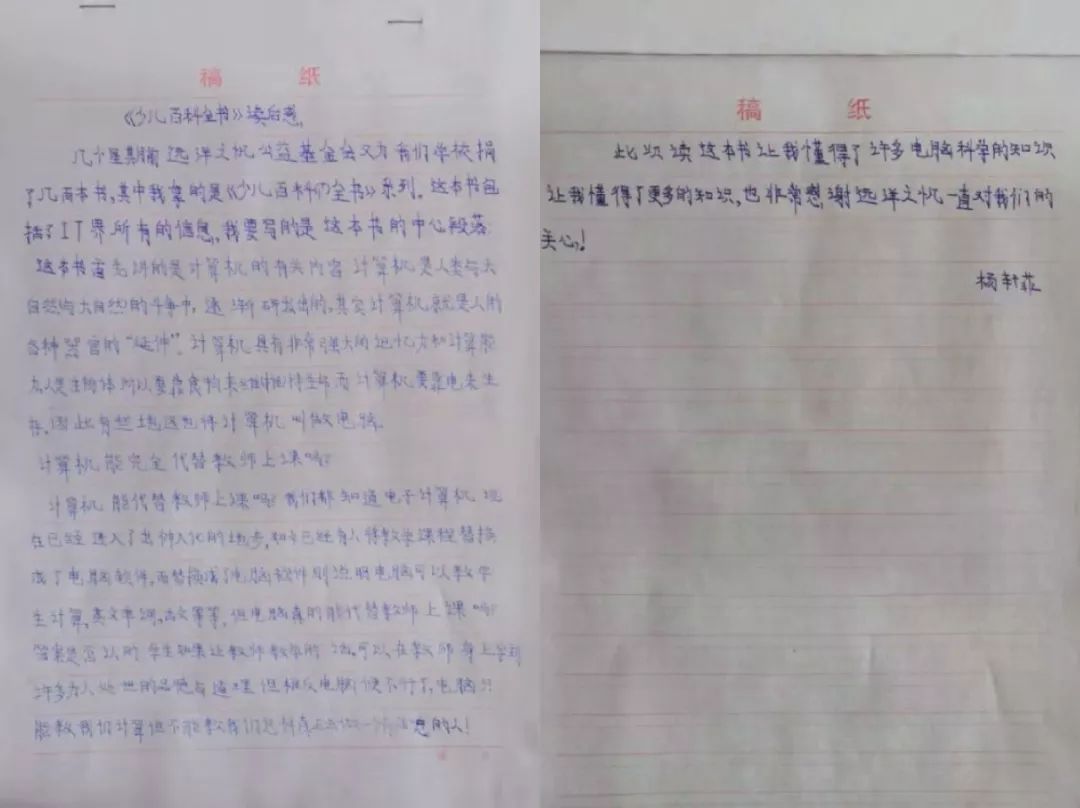 稿 纸
《少儿百科全书》读后感
几个星期前远洋之帆公益基金会又为我们学校捐
了几百本书,其中我拿的是《少儿百科们全书》系列。这本书包
括了IT界所有的信息,我要写的是这本书的中心段落:
这本书首先讲的是计算机的有关内容 计算机是人类与大
自然与大自然的斗争中,逐渐研发出的,其实计算机就是人的
各种器官的"延伸"。计算机具有非常强大的记忆力和计算能
力人是生物体所以要靠食物来维持生命而计算机要靠电来生
存,因此有些地区也将计算机叫做电脑。
计算机能完全代替教师上课吗?
计算机能代替教师上课吗?我们都知道电子计算机现
在已经进入了出神入化的地步,如今已经有人将教学课程替换
成了电脑软件,而替换成了电脑软件则说明电脑可以教学
生计算,英文单词,古文等等,但电脑真的能代替教师上课吗?
答案是否认的 学生如果让教师教学的话,可以在教师身上学到
许多为人处世的品德与道理 但相反电脑便不行了,电脑只
能教我们计算但不能教我们怎样真正去做一个的人!
稿 纸
此次读这本书让我懂得了许多电脑科学的知识
让我懂得了更多的知识,也非常感谢远洋之帆一直对我们的
关心!
杨轩菲